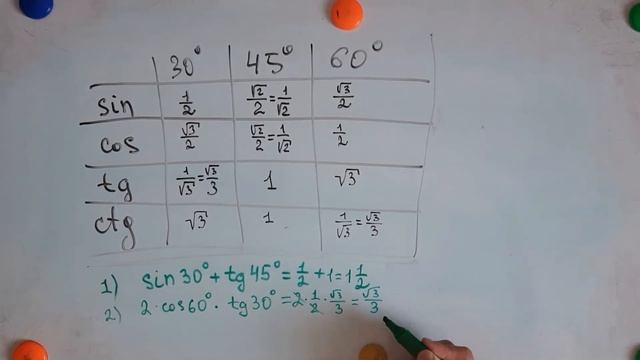 30° 45° 60°
sin 1/2 √2/2=1/√2 √3/2
cos √3/2 √2/2=1/√2 1/2
tg 1/√3=√3/3 1 √3
ctg √3 1 1/√3=√3/3
1) sin 30° + tg 45° = 1/2 + 1 = 1 1/2
2) 2 · cos 60° · tg 30° = 2 · 1/2 · √3/3 = √3/3